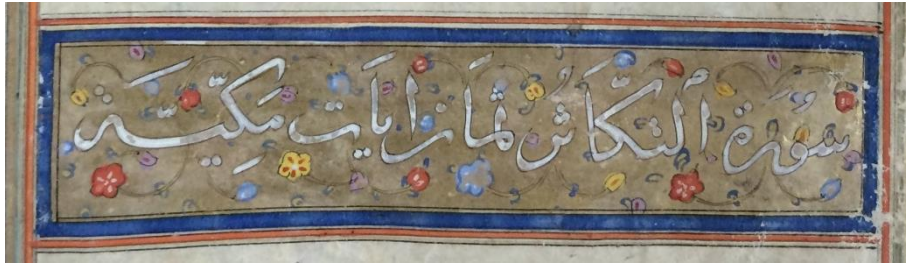 سُورَة اَلتَّكَاثُر ثَمَان ايَات مَكِّيَّة